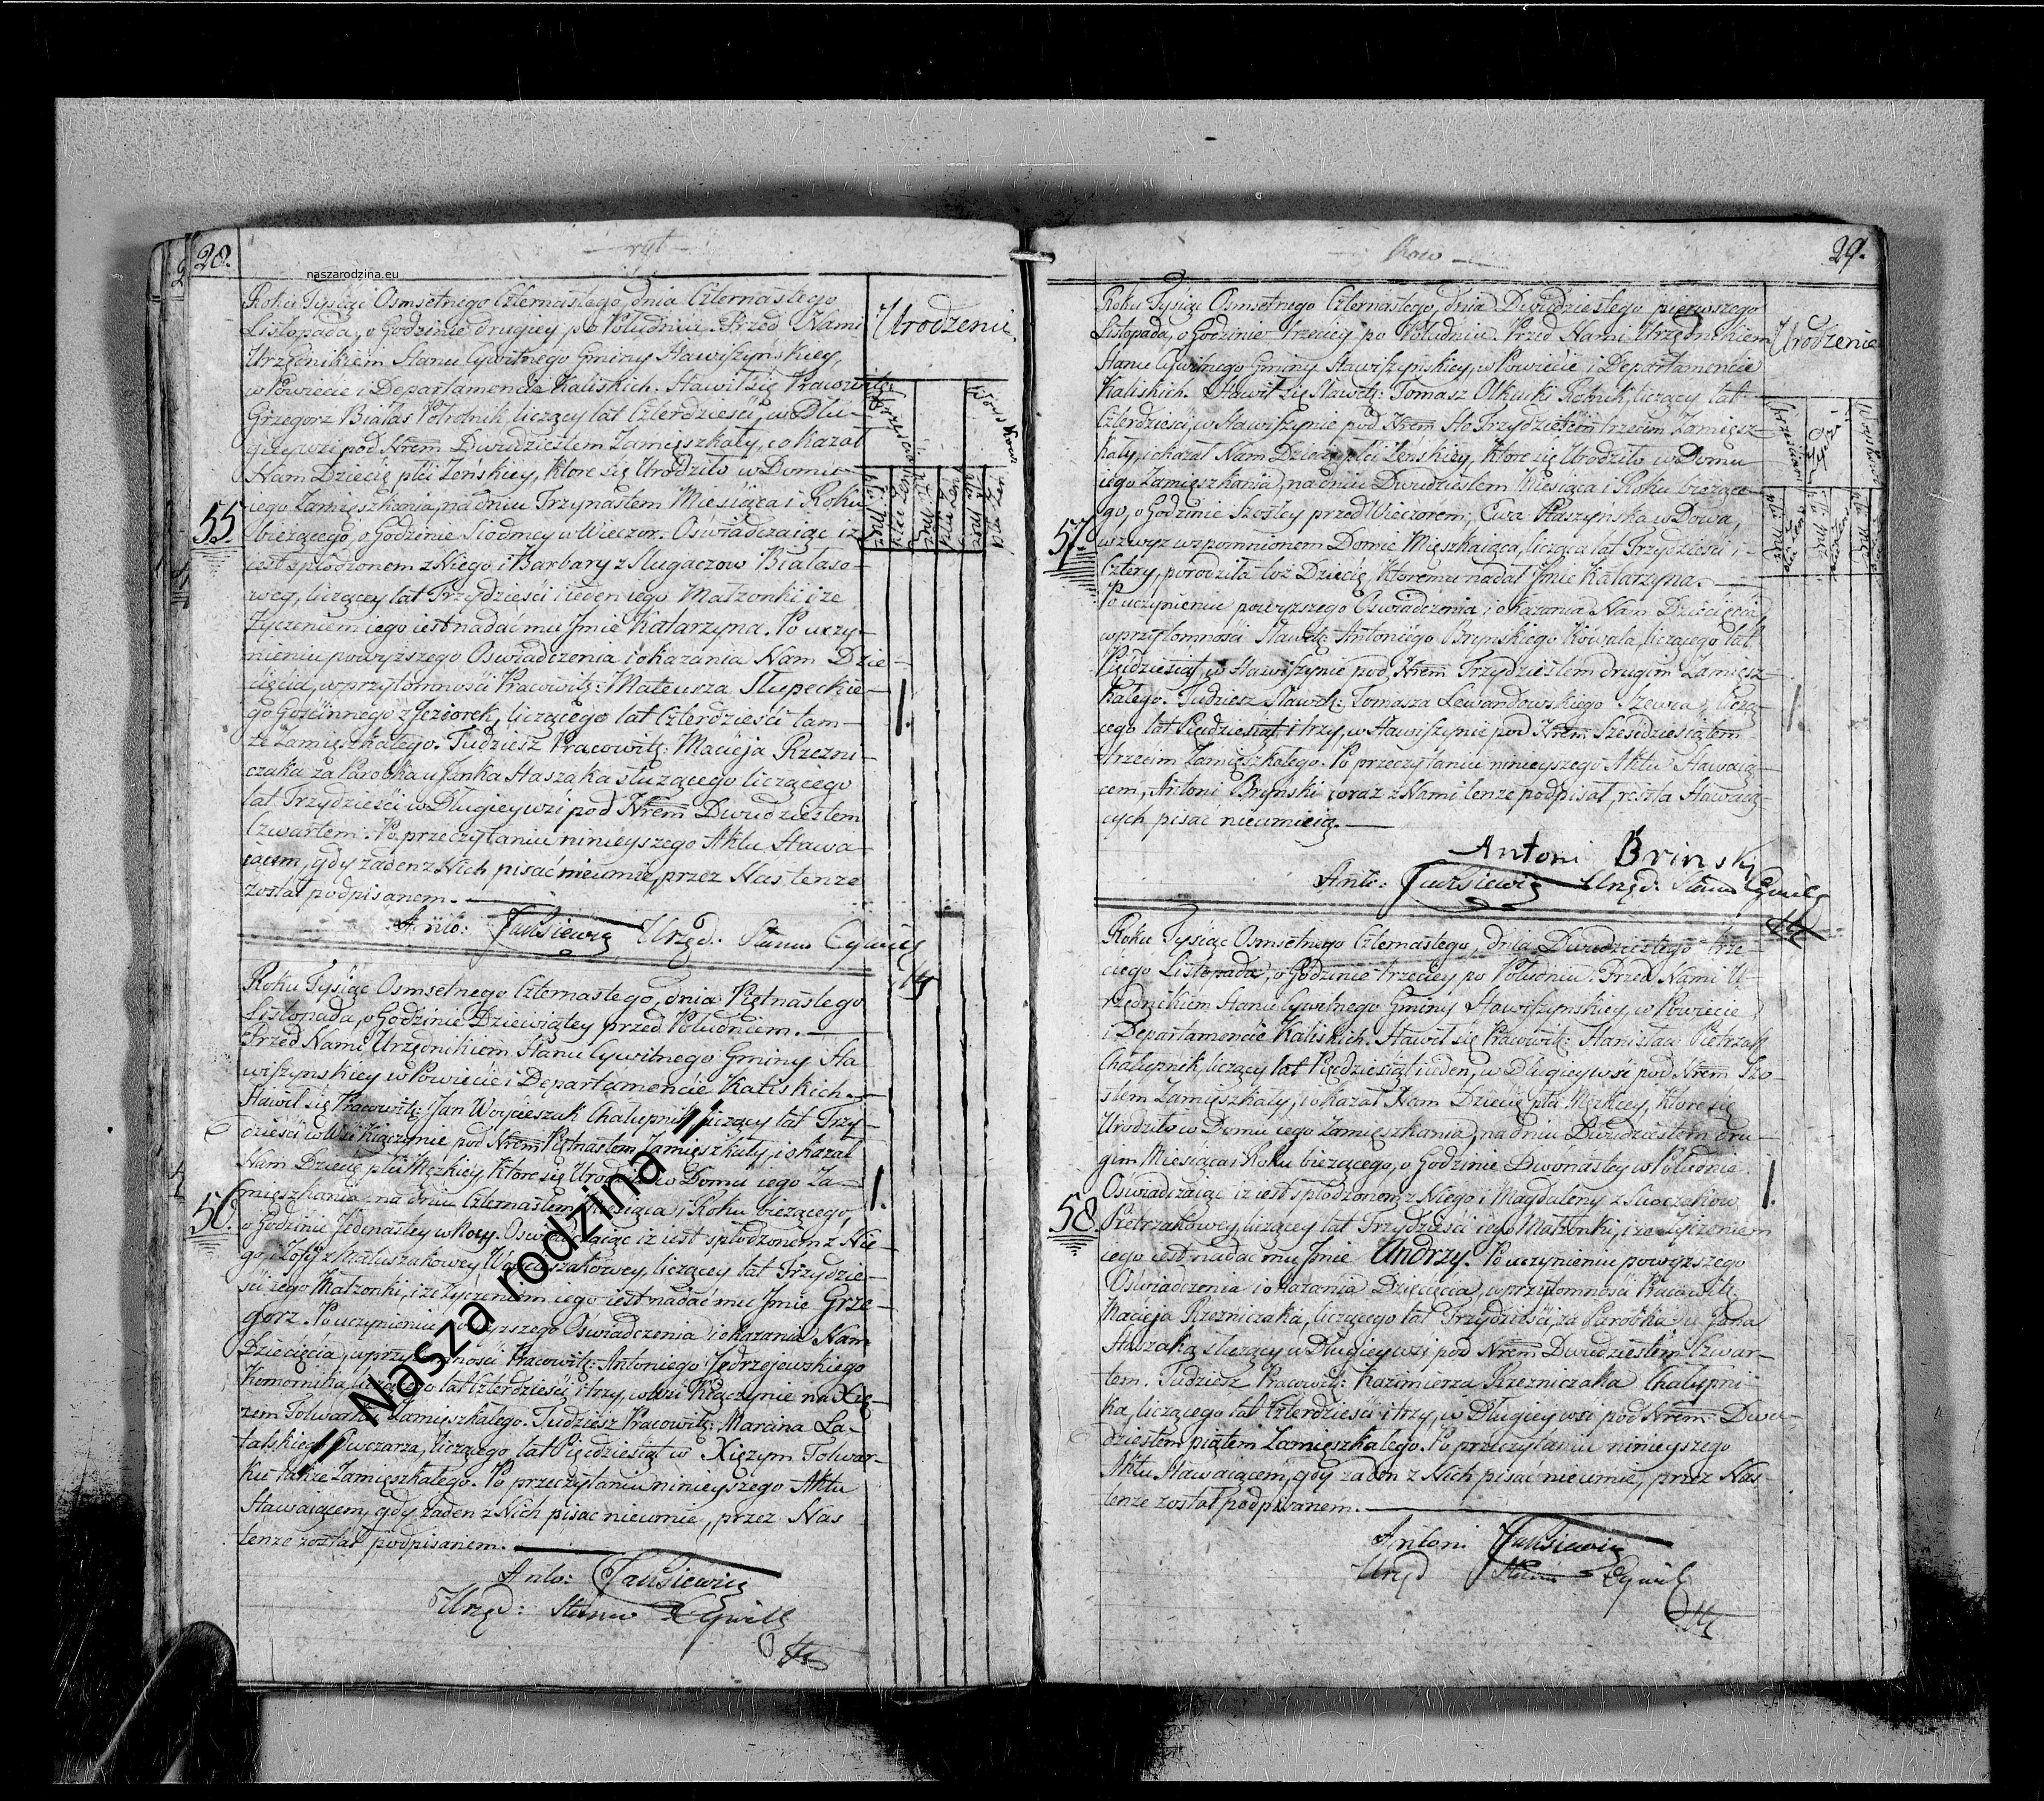 28.
ryt
naszarodzina.eu
Urodzenie
Roku Tysiąc Osmsetnego Czternastego, dnia Czternastego
Listopada, o Godzinie drugiey po Południu. Przed Nami
Urzędnikiem Stanu Cywilnego Gminy Stawiszynskiey,
w Powiecie i Departamencie Kaliskich. Stawił się Pracowity:
Grzegorz Białas Połrolnik, liczący lat Czterdzieści, w Dłu-
giey wsi pod Nrem Dwudziestem Zamieszkały, i okazał
Nam Dziecię płci Zenskiey, ktore się Urodziło w Domu
iego Zamieszkania, na dniu Trzynastem Miesiąca i Roku
55
bieżącego, o Godzinie Siodmey w Wieczor. Oswiadczaiąc iż
iest spłodzonem z Niego i Barbary z Slugaczow Białaso-
wey, liczącey lat Trzydzieści i ieden iego Małżonki i że
Zyczeniem iego iest nadać mu Jmie Katarzyna. Po uczy-
nieniu powyższego Oswiadczenia i okazania Nam Dzie-
cięcia, w przytomności Pracowitz: Mateusza Słupeckie-
go Goscinnego z Jeziorek, liczącego lat Czterdzieści tam-
że Zamięszkałego. Tudziesz Pracowitz: Macieja Rzezni-
czaka za Parobka u Janka Staszaka służącego liczącego
lat Trzydzieści w Długiey wsi pod Nrem Dwudziestem
Czwartem. Po przeczytaniu ninieyszego Aktu Stawa-
iącem, gdy żaden z Nich pisać nieumie, przez Nas tenże
został podpisanem.
Urzęd: Stanu Cywil
Roku Tysiąc Osmsetnego Czternastego, dnia Piętnastego
Listopada, o Godzinie Dziewiątey przed Południem.
Przed Nami Urzędnikiem Stanu Cywilnego Gminy Sta
wiszynskiey w Powiecie i Departamencie Kaliskich.
Stawił się Pracowitz: Jan Woycieszak Chałupnik liczący lat Trzy-
dzieści w Wsi Kiączynie pod Nrem Piętnastem Zamięszkały, i okazał
Nam Dziecię płci Męzkiey ktore się Urodziło w Domu iego Za-
mięszkania na dniu Czternastem Miesiąca i Roku bieżącego,
56.
o Godzinie Jedenastey w Nocy. Oswiadczaiąc iż iest spłodzonem z Nie-
go i Zofij z Matuszakowey Woycieszakowey, liczącey lat Trzydzie-
ści iego Małżonki, i że Zyczeniem iego iest nadać mu Jmie Grze-
gorz. Po uczynieniu powyższego Oświadczenia i okazania Nam
Dziecięcia, w przytomności Pracowitz: Antoniego Jędrzejewskiego
Komornika, liczącego lat Czterdzieści i trzy, w wsi Kiączynie na Xię-
żem Folwarku Zamięszkałego. Tudziesz Pracowitz: Marcina La-
talskiego Owczarza, liczącego lat Pięćdziesiąt w Xiężym Folwar-
ku także Zamięszkałego. Po przeczytaniu ninieyszego Aktu
Stawaiącem, gdy żaden z Nich pisać nieumie, przez Nas
tenże został podpisanem.
Urzęd: Stanu Cywill
// Nasza rodzina //
29.
kow
Urodzenie
Roku Tysiąc Osmsetnego Czternastego, dnia Dwudziestego pierwszego
Listopada, o Godzinie trzeciey po Południu. Przed Nami Urzędnikiem
Stanu Cywilnego Gminy Stawiszynskiey, w Powiecie i Departamencie
Kaliskich. Stawił się Sławetz: Tomasz Olkuski Rolnik, liczący lat
Czterdzieści, w Stawiszynie pod Nrem Sto Trzydziestem trzecim Zamięsz-
kały, i okazał Nam Dziecię płci Zeńskiey, ktore się Urodziło w Domu
iego Zamięszkania, na dniu Dwudziestem Miesiąca i Roku bieżące-
go, o Godzinie Szostey przed Wieczorem, Ewa Ptaszynska wDowa,
57.
w zwyż wzpomnionem Domie Mięszkaiąca, licząca lat Trzydzieści i
Cztery, porodziła toż Dziecię, ktoremu nadał Jmie Katarzyna.
Po uczynieniu powyższego Oświadczenia i okazania Nam Dziecięcia
w przytomności Sławetz: Antoniego Brynskiego Kowala, liczącego lat
Pięćdziesiąt, w Stawiszynie pod Nrem Trzydziestem drugim Zamięsz-
kałego. Tudziesz Sławetz: Tomasza Lewandowskiego Szewca, liczą-
cego lat Pięćdziesiąt i trzy, w Stawiszynie pod Nrem Sześcdziesiątem
trzecim Zamięszkałego. Po przeczytaniu ninieyszego Aktu Stawaią-
cem, Antoni Brynski zoraz z Nami tenże podpisał, reszta Stawaią-
cych pisać nieumieią.
Antoni Brinski
Urzęd: Stanu Cywil
Roku Tysiąc Osmsetnego Czternastego, dnia Dwudziestego trze-
ciego Listopada, o Godzinie trzeciey po Południu. Przed Nami U-
rzędnikiem Stanu Cywilnego Gminy Stawiszynskiey, w Powiecie
i Departamencie Kaliskich. Stawił się Pracowitz: Stanisław Pietrzak
Chałupnik, liczący lat Pięćdziesiąt i ieden, w Długiey wsi pod Nrem Szo-
stem Zamięszkały, i okazał Nam Dziecię płci Męzkiey, ktore się
Urodziło w Domu iego Zamięszkania, na dniu Dwudziestem dru-
gim Miesiąca i Roku bieżącego, o Godzinie Dwonastey w Południe.
Oświadczaiąc iż iest spłodzonem z Niego i Magdaleny z
58.
Pietrzakowey liczącey lat Trzydzieści iego Małżonki, i że Zyczeniem
iego iest nadać mu Jmie Andrzy. Po uczynieniu powyższego
Oświadczenia i okazania Dziecięcia, w przytomności Pracowitz:
Macieja Rzezniczaka, liczącego lat Trzydzieści, za Parobka u Jana
Staszaka służący w Długiey wsi pod Nrem Dwudziestem Czwar-
tem. Tudziesz Pracowitz: Kazimierza Rzezniczaka Chałupni-
ka, liczącego lat Czterdzieści i trzy, w Długiey wsi pod Nrem Dwu-
dziestem piątem Zamięszkałego. Po przeczytaniu ninieyszego
Aktu Stawaiącem, gdy żaden z Nich pisać nieumie, przez Nas
tenże został podpisanem.
Antoni
Urzęd Stanu Cywil